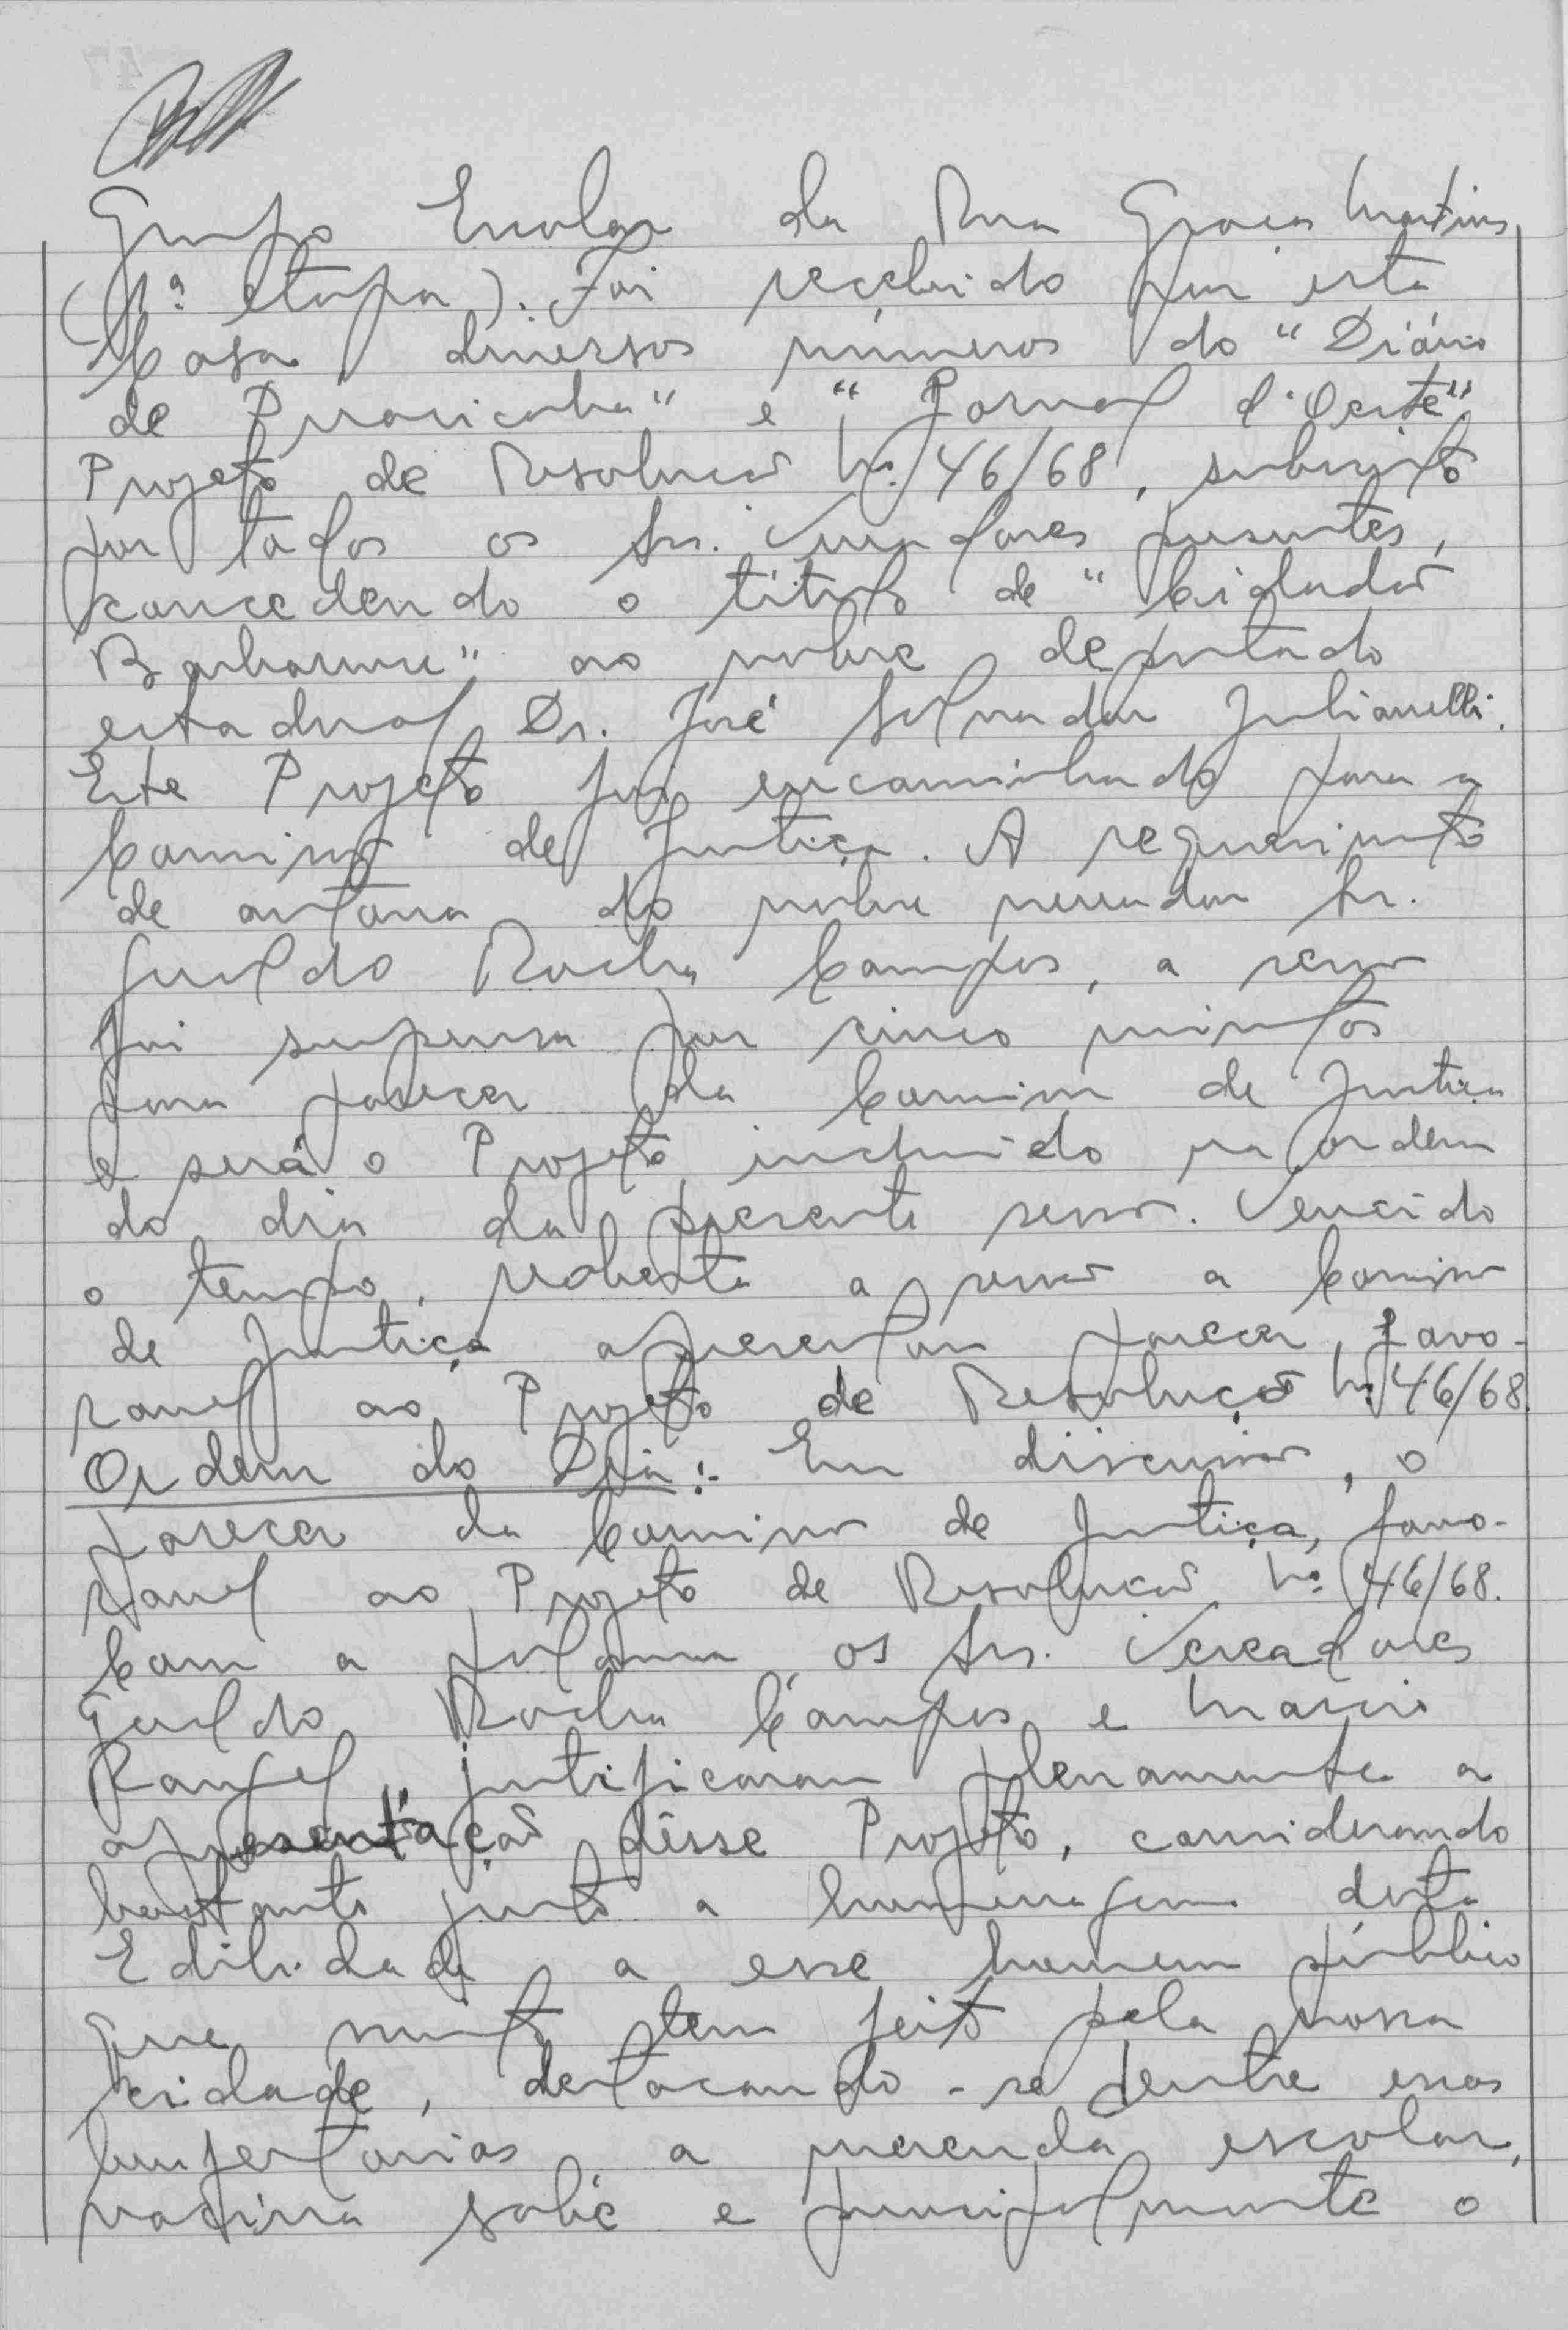 Grupo Escolar da Rua Graça Martins
(1ª etapa). Foi recebido por esta
Casa diversos números do "Diário
de Piracicaba" e "Jornal d'Oeste".
Projeto de Resolução Nº 46/68, subscrito
por todos os Srs. Vereadores presentes,
concedendo o título de "Cidadão
Barbarense" ao nobre deputado
estadual Dr. José Salvador Julianelli.
Este Projeto foi encaminhado para a
Comissão de Justiça. A requerimento
de autoria do nobre vereador Sr.
Geraldo Rocha Campos, a sessão
foi suspensa por cinco minutos
para parecer da Comissão de Justiça
e será o Projeto incluido na ordem
do dia da presente sessão. Vencido
o tempo, reaberta a sessão a Comissão
de Justiça apresentou parecer, favo-
ravel ao Projeto de Resolução Nº 46/68.
Ordem do Dia:- Em discussão, o
parecer da Comissão de Justiça, favo-
ravel ao Projeto de Resolução Nº 46/68.
Com a palavra os Srs. Vereadores
Geraldo Rocha Campos e Marcio
Rangel, justificaram plenamente a
apresentação dêsse Projeto, considerando
bastante justo a homenagem desta
Edilidade, a esse homem público
que muito tem feito pela nossa
cidade, destacando-se dentre essas
bemfeitorias a merenda escolar,
vacina sabé e principalmente o